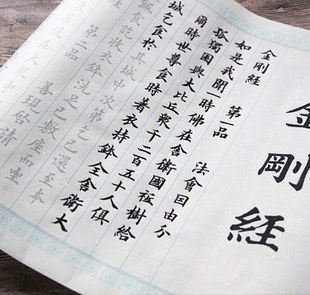 金剛經
金剛經
第一品 法會因由分
如是我聞一時佛在舍衛國祇樹給
孤獨園與大比丘眾千二百五十人俱
爾時世尊食時著衣持鉢入舍衛大
城乞食於
其城中次第乞已還至本
食訖收衣鉢洗足已敷座而坐
第二品 善現啟請